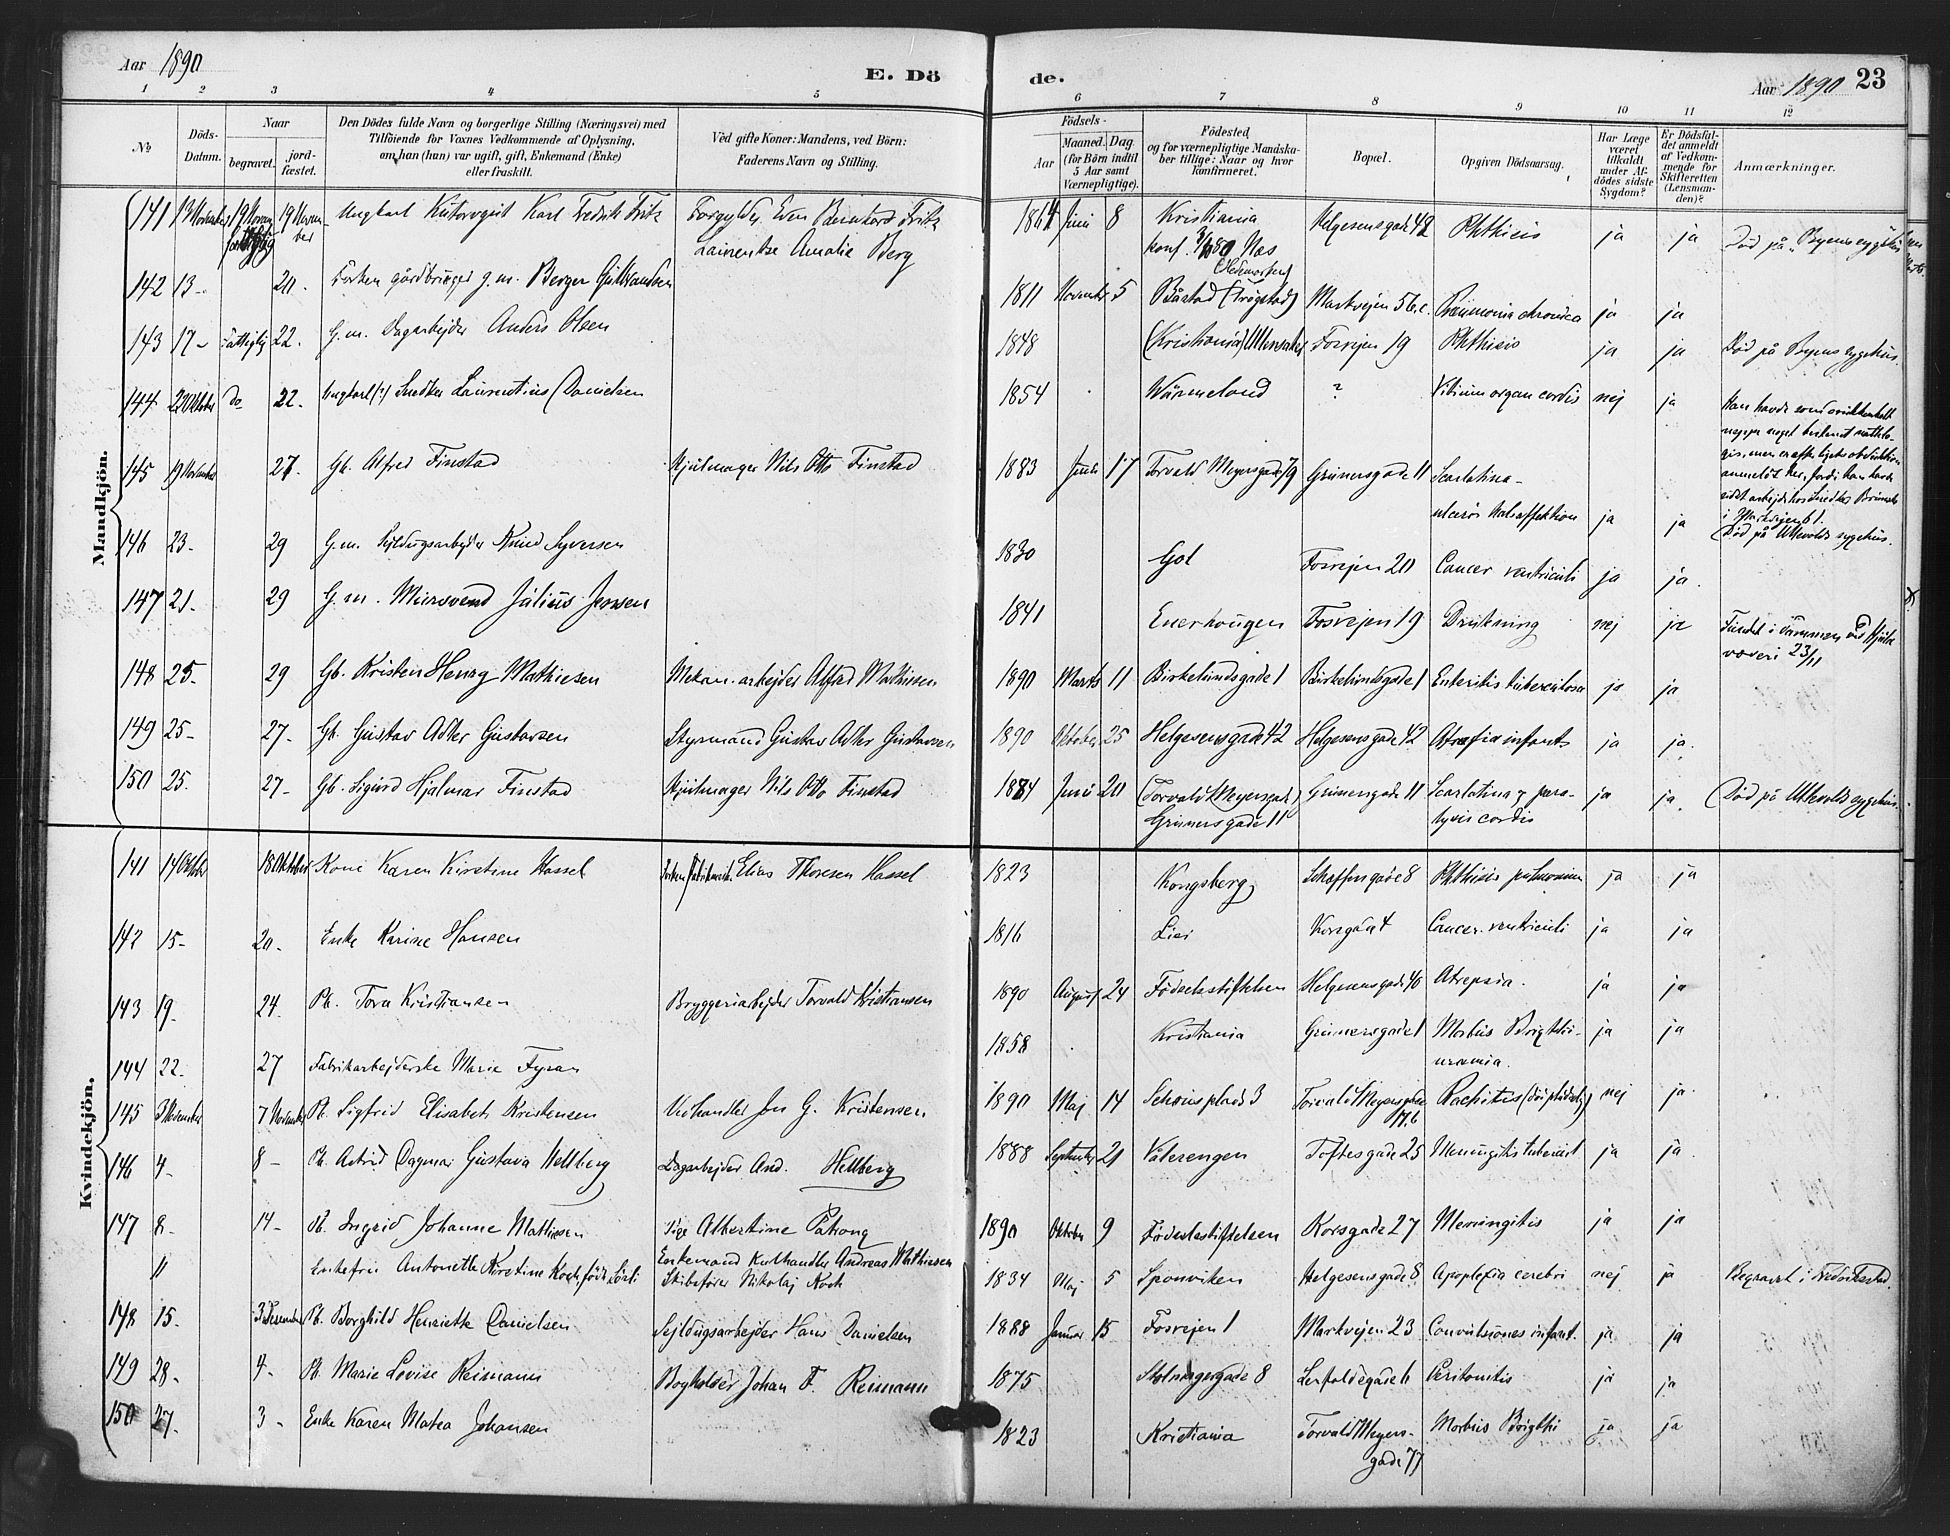 Aar 1890
E. Dö
de.
Aar 1890 23
1 2 3 4 5 6 7 8 9 10 11 12
№
Döds-Datum.
Naar
begravet.
jord-fæstet.
Den Dödes fulde Navn og borgerlige Stilling (Næringsvei) med
Tilföiende for Voxnes Vedkommende af Oplysning,
om han (hun) var ugift, gift, Enkemand (Enke)
eller fraskilt.
Ved gifte Koner: Mandens, ved Börn:
Faderens Navn og Stilling.
Födsels-
Aar
Maaned. Dag
(for Börn indtil
5 Aar samt
Værnepligtige).
Födested
og for værnepligtige Mandska-
ber tillige: Naar og hvor
konfirmeret.
Bopæl.
Opgiven Dödsaarsag.
Har Læge
været
tilkaldt
under Af-
dödes sidste
Sygdom?
Er Dödsfal-
det anmeldt
af Vedkom-
mende for
Skifteretten
(Lensman-
den)?
Anmærkninger.
Mandkjön.
141 13 November 19 Novem 19 Novem ber Ungkarl Karl Fredrik Fritz Forgylder Even Bernhard Fritz 1864 Juni 8 Kristiania Helgesensgade 42 Phthisis ja ja Död på Byens sygehus
Laurentze Amalie Berg konf. Nes
142 13- 20. gårdbruger g.m. Berger Gulbrandsen 1811 November 5 Båstad (Trøgstad) Markvejen 56 c. Pneumonia chronica ja ja
143 17- fattiglig 22. G.m. Dagarbejder Anders Olsen 1848 (Kristiania) Ullensaker Fosvejen 19 Phthisis ja ja Död på Byens sygehus.
144 Oktober Do 22. Ungkarl (?) Snedker Laurentius Danielsen 1854 Wärmeland ? Vitium organ cordis nej ja Han havde
145 19 November 27. Gb. Alfred Finstad Hjulmager Nils Otto Finstad 1883 Juni 17 Torvald Meyersgade 79 Grünersgade 11 Scarlatina-
ulcerös Halsaffektion ja ja
i Markvejen 61.
Död på Ullevolds sygehus.
146 23- 29 G.m. Sejldugsarbejder Knud Syversen 1830 Gol Fosvejen 20 Cancer ventriculi ja ja.
147 21- 29 G.m. Mursvend Julius Jensen 1841 Enerhougen Fosvejen 19 Drukning nej ja Fundet i
væveri 23/11
148 25. 29 Gb. Kristen Henry Mathiesen Mekan. arbejder Alfred Mathisen 1890 Marts 11 Birkelundsgade 1 Birkelundsgade 1 Enteritis tuberculosa ja ja
149 25- 27- Gb. Gustav Adler Gustavsen Styrmand Gustav Adler Gustavsen 1890 Oktober 25 Helgesensgade 42 Helgesensgade 42 Atrofia infants ja ja.
150 25. 27- Gb. Sigurd Hjalmar Finstad Hjulmager Nils Otto Finstad 1884 Juni 20 (Torvald Meyersgade) Grünersgade 11 Scarlatina & para- ja ja. Död på Ullevolds sygehus.
Grünersgade 11 lysis cordis
Kvindekjön.
141 14 Oktober 18 Oktober Kone Karen Kirstine Hassel Elias Thoresen Hassel 1823 Kongsberg Schaffersgade 8 Phthisis pulmonum ja ja
142 15- 20. Enke Karine Hansen 1816 Lier Korsgade 4 Cancer ventriculi ja ja
143 19. 24. Pb. Tora Kristiansen Bryggeriarbejder Torvald Kristiansen 1890 August 24 Födselsstiftelsen Helgesensgade 40 Atrepsia. ja ja
144 22- 27 Fabrikarbejderske Marie Fyran 1858 Kristiania Grünersgade 1 Morbus Brigthi-
uræmia. ja ja
145 3 November 7 November Pb. Sigfrid Elisabeth Kristensen Vedhandler Jon G. Kristensen 1890 Maj 14 Schous plads 3 Torvald Meyersgade Rachitis nej ja
146 4- 8- Pb. Astrid Dagmar Gustava Hellberg Dagarbejder And. Hellberg 1888 September 21 Valerengen Toftesgade 25 Meningitis tubercul ja ja.
147 8- 14- Pb. Ingrid Johanne Mathiesen Pige Albertine
Enkemand Kulhandler Andreas Mathiesen 1890 Oktober 9 Födselsstiftelsen Korsgade 27 Meningitis ja ja
11 Enkefru Antonette Kirstine Koch född Skibsfører Nikolaj Koch 1834 Maj 5 Sponviken Helgesensgade 8 Apoplexia cerebri nej ja Begravet i Fredrikstad.
148 15. 3 Desember Pb. Borghild Henriette Danielsen Sejldugsarbejder Hans Danielsen 1888 Januar 15 Fosvejen 1 Markvejen 23 Convulsiones infant. ja ja
149 28- 4- Pb. Marie Lovise Reimann Bogholder Johan F. Reimann 1875 Stolmagergade 8 Peritonitis ja ja
150 27. 3- Enke Karen Matea Johansen 1823 Kristiania Torvald Meyers-
gade 77 Morbus Brigthi ja ja